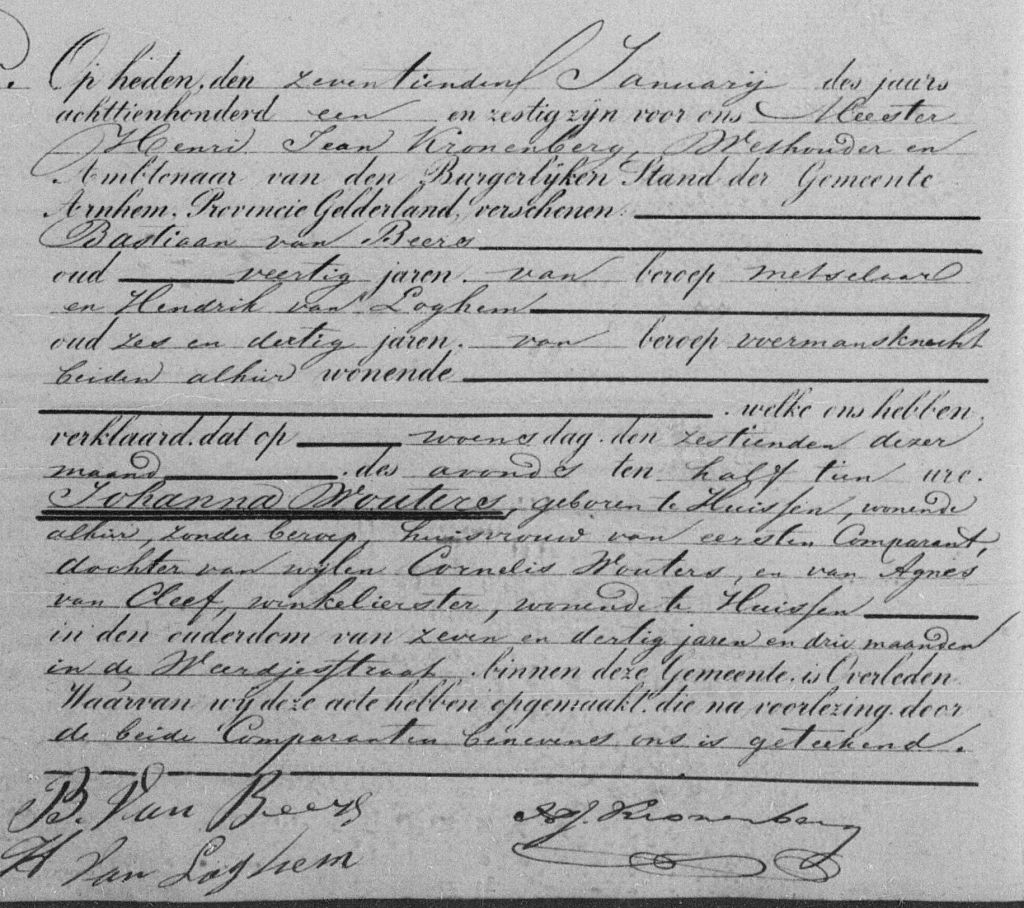 Op heden, den zeventienden Januarij des jaars
achttienhonderd een en zestig zijn voor ons Meester
Henri Jean Kronenberg, Wethouder en
Ambtenaar van den Burgerlijken Stand der Gemeente
Arnhem, Provincie Gelderland, verschenen:
Bastiaan van Beers
oud veertig jaren, van beroep metselaar
en Hendrik van Loghem
oud zes en dertig jaren, van beroep voermansknecht
beiden alhier wonende
, welke ons hebben
verklaard, dat op woensdag, den zestienden dezer
maand, des avonds ten half tien ure,
Johanna Wouters, geboren te Huissen, wonende
alhier, zonder beroep, huisvrouw van eersten Comparant,
dochter van wijlen Cornelis Wouters, en van Agnes
van Cleef, winkelierster, wonende te Huissen
in den ouderdom van zeven en dertig jaren en drie maanden
in de Weerdjesstraat, binnen deze Gemeente, is Overleden
Waarvan wij deze acte hebben opgemaakt, die na voorlezing door
de beide Comparanten benevens ons is geteekend.
B. Van Beers
HJ Kronenberg
H Van Loghem